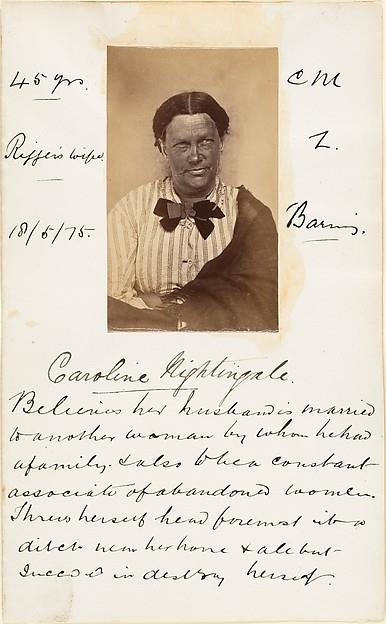 45 yrs.
wife
18/5/75.
CM
2.
Barnis.
Caroline Nightingale.
Believes her husband is married
to another woman by whom he had
a family. & also to be a constant
associate of abandoned women.
Threw herself head foremost into a
ditch near her home & all but
Succeed in destroy herself.